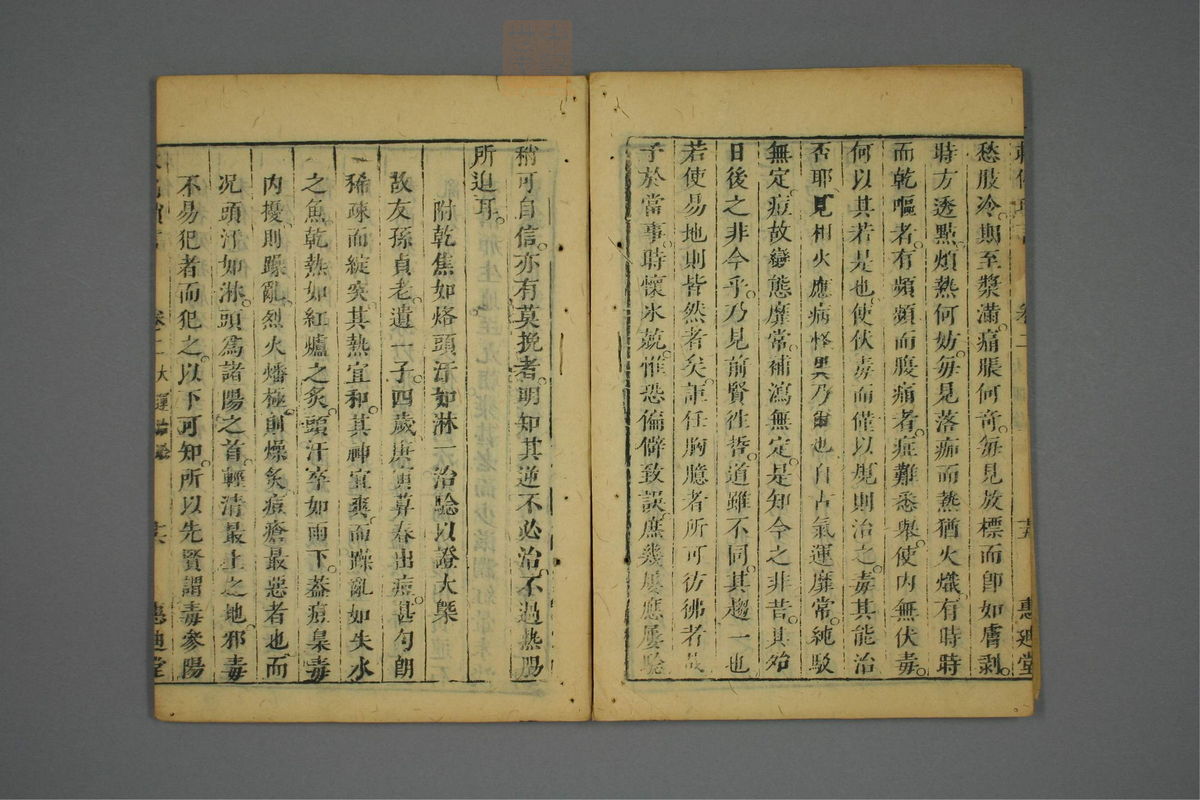 愁肢冷。期至漿滿。痛脹何奇。每見放標而卽如膚剥。
時方透點。煩熱何妨。每見落痂而熱猶火熾。有時時
而乾嘔者。有頻頻而腹痛者。症難悉舉。使內無伏毒。
何以其若是也。使伏毒而僅以規則治之。毒其能治
否耶。見相火應病
乃爾也自古氣運靡常。純駁
無定。痘故變態靡常。補瀉無定。是知今之非昔。其殆
日後之非今乎。乃見前賢徃哲。道雖不同。其趨一也
若使易地則皆然者矣。詎任胸臆者所可彷彿者哉
子於當事。時懷氷兢。惟恐偏僻致誤。庶幾屢應屢驗
卷二
惠迪堂
稍可自信。亦有莫挽者。明知其逆不必治。不過熱腸
所迫耳。
附乾焦如烙頭汗如淋一治驗以證大槩
故友孫貞老。遺一子。四歲。庚寅暮春出痘。甚勻朗
稀疎而綻突。其熱宜和。其神宜爽。而躁亂如失水
之魚。乾熱如紅爐之炙。頭汗卒如雨下。葢痘梟毒
內擾。則躁亂。烈火燔極。則燥炙。痘瘡最惡者也。而
况頭汗如淋。頭爲諸陽之首。輕清最上之地。邪毒
不易犯者而犯之。以下可知。所以先賢謂毒參陽
卷二
大運
惠迪堂